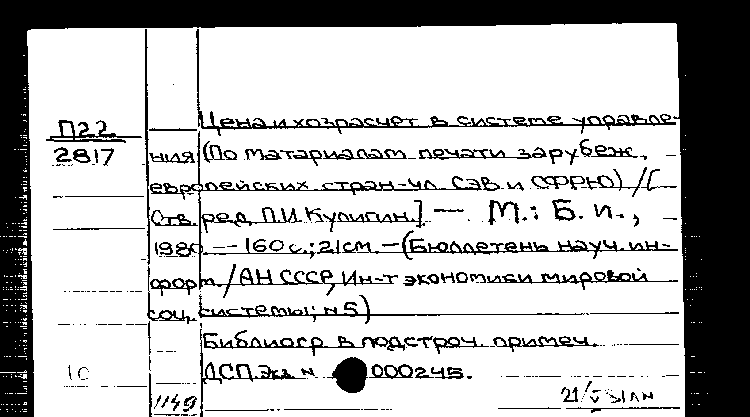 П22
2817
Цена и хозрасчет в системе управле-
ния (По материалам печати зарубеж.
европейских стран-чл. СЭВ и СФРЮ) / [
Отв. ред. П.И. Кулигин.] — М.: Б. и.,
1980. — 160 с.; 21 см. — (Бюллетень науч. ин-
форм. / АН СССР, Ин-т экономики мировой
соц. системы; N 5)
Библиогр в подстроч. примеч.
ДСП. Экз. N 000245.
10
1149